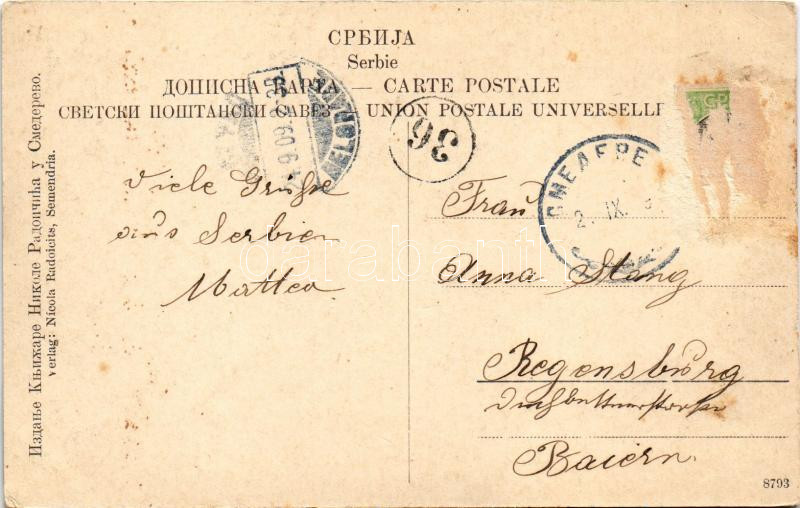 СРБИЈА
Serbie
ДОПИСНА КАРТА — CARTE POSTALE
СВЕТСКИ ПОШТАНСКИ САВЕЗ UNION POSTALE UNIVERSELLE
Издање Књижаре Николе Радоичића у Смедерево.
Verlag: Nicola Radoicits, Semendria.
9 09
36
СМЕДЕРЕ
2. IX.
Viele Grüße
aus Serbien
Frau
Anna Stang
Regensburg
Baiern.
darabanth
8793